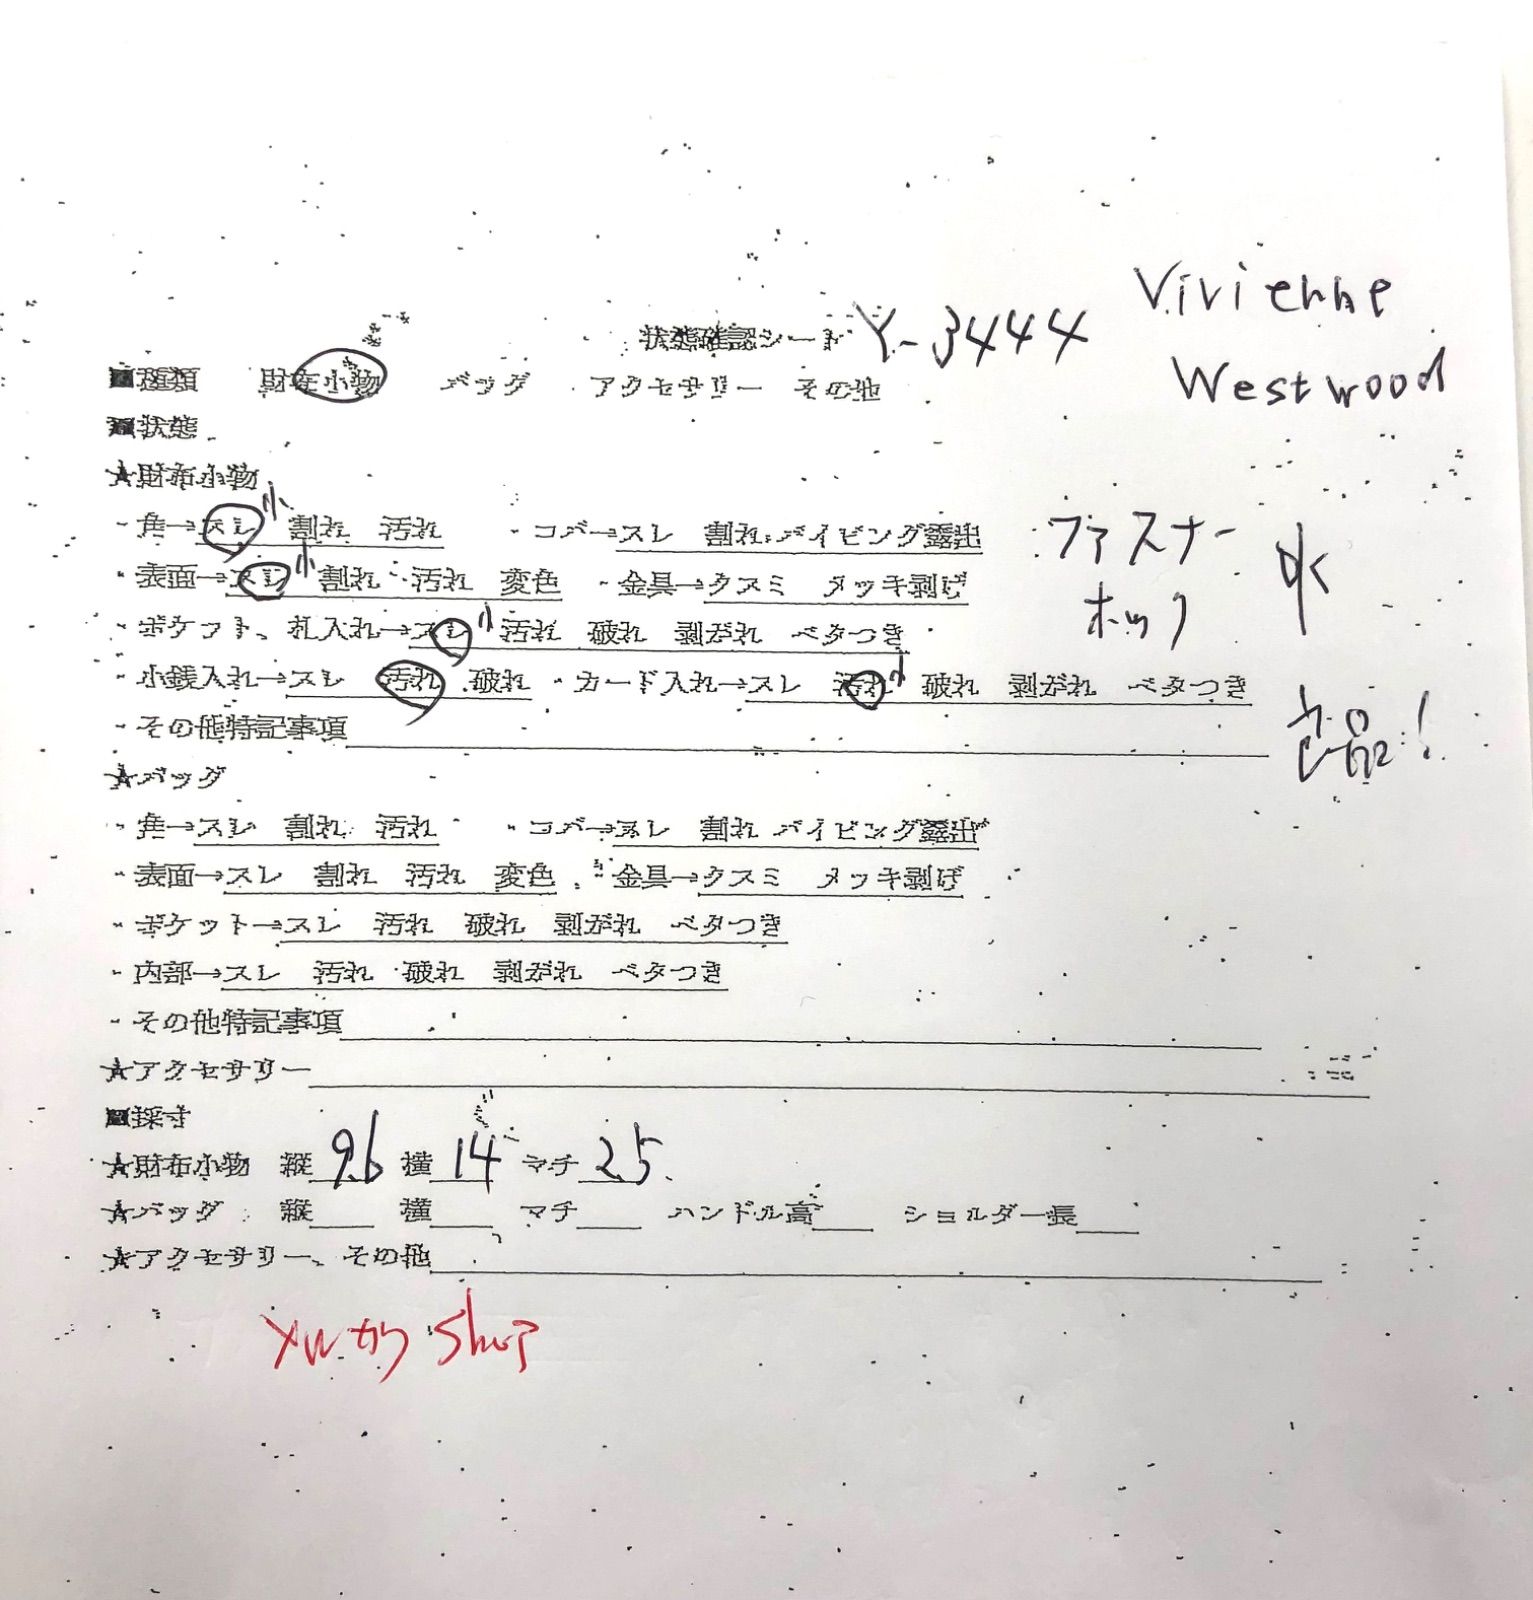 Vivienne
Westwood
状態確認シート Y-3444
■種類 財布小物 バッグ アクセサリー その他
■状態
★財布小物
・角→スレ小 割れ 汚れ ・コバ→スレ 割れ パイピング露出
ファスナー
・表面→スレ小 割れ 汚れ 変色 ・金具→クスミ メッキ剥げ
ホック
・ポケット、札入れ→スレ小 汚れ 破れ 剥がれ ベタつき
・小銭入れ→スレ 汚れ 破れ ・カード入れ→スレ 汚れ小 破れ 剥がれ ベタつき
・その他特記事項
★バッグ
・角→スレ 割れ 汚れ ・コバ→スレ 割れ パイピング露出
・表面→スレ 割れ 汚れ 変色 ・金具→クスミ メッキ剥げ
・ポケット→スレ 汚れ 破れ 剥がれ ベタつき
・内部→スレ 汚れ 破れ 剥がれ ベタつき
・その他特記事項
★アクセサリー
■採寸
★財布小物 縦 9.6 横 14 マチ 2.5
★バッグ 縦 横 マチ ハンドル高 ショルダー長
★アクセサリー、その他
メルカリ Shop